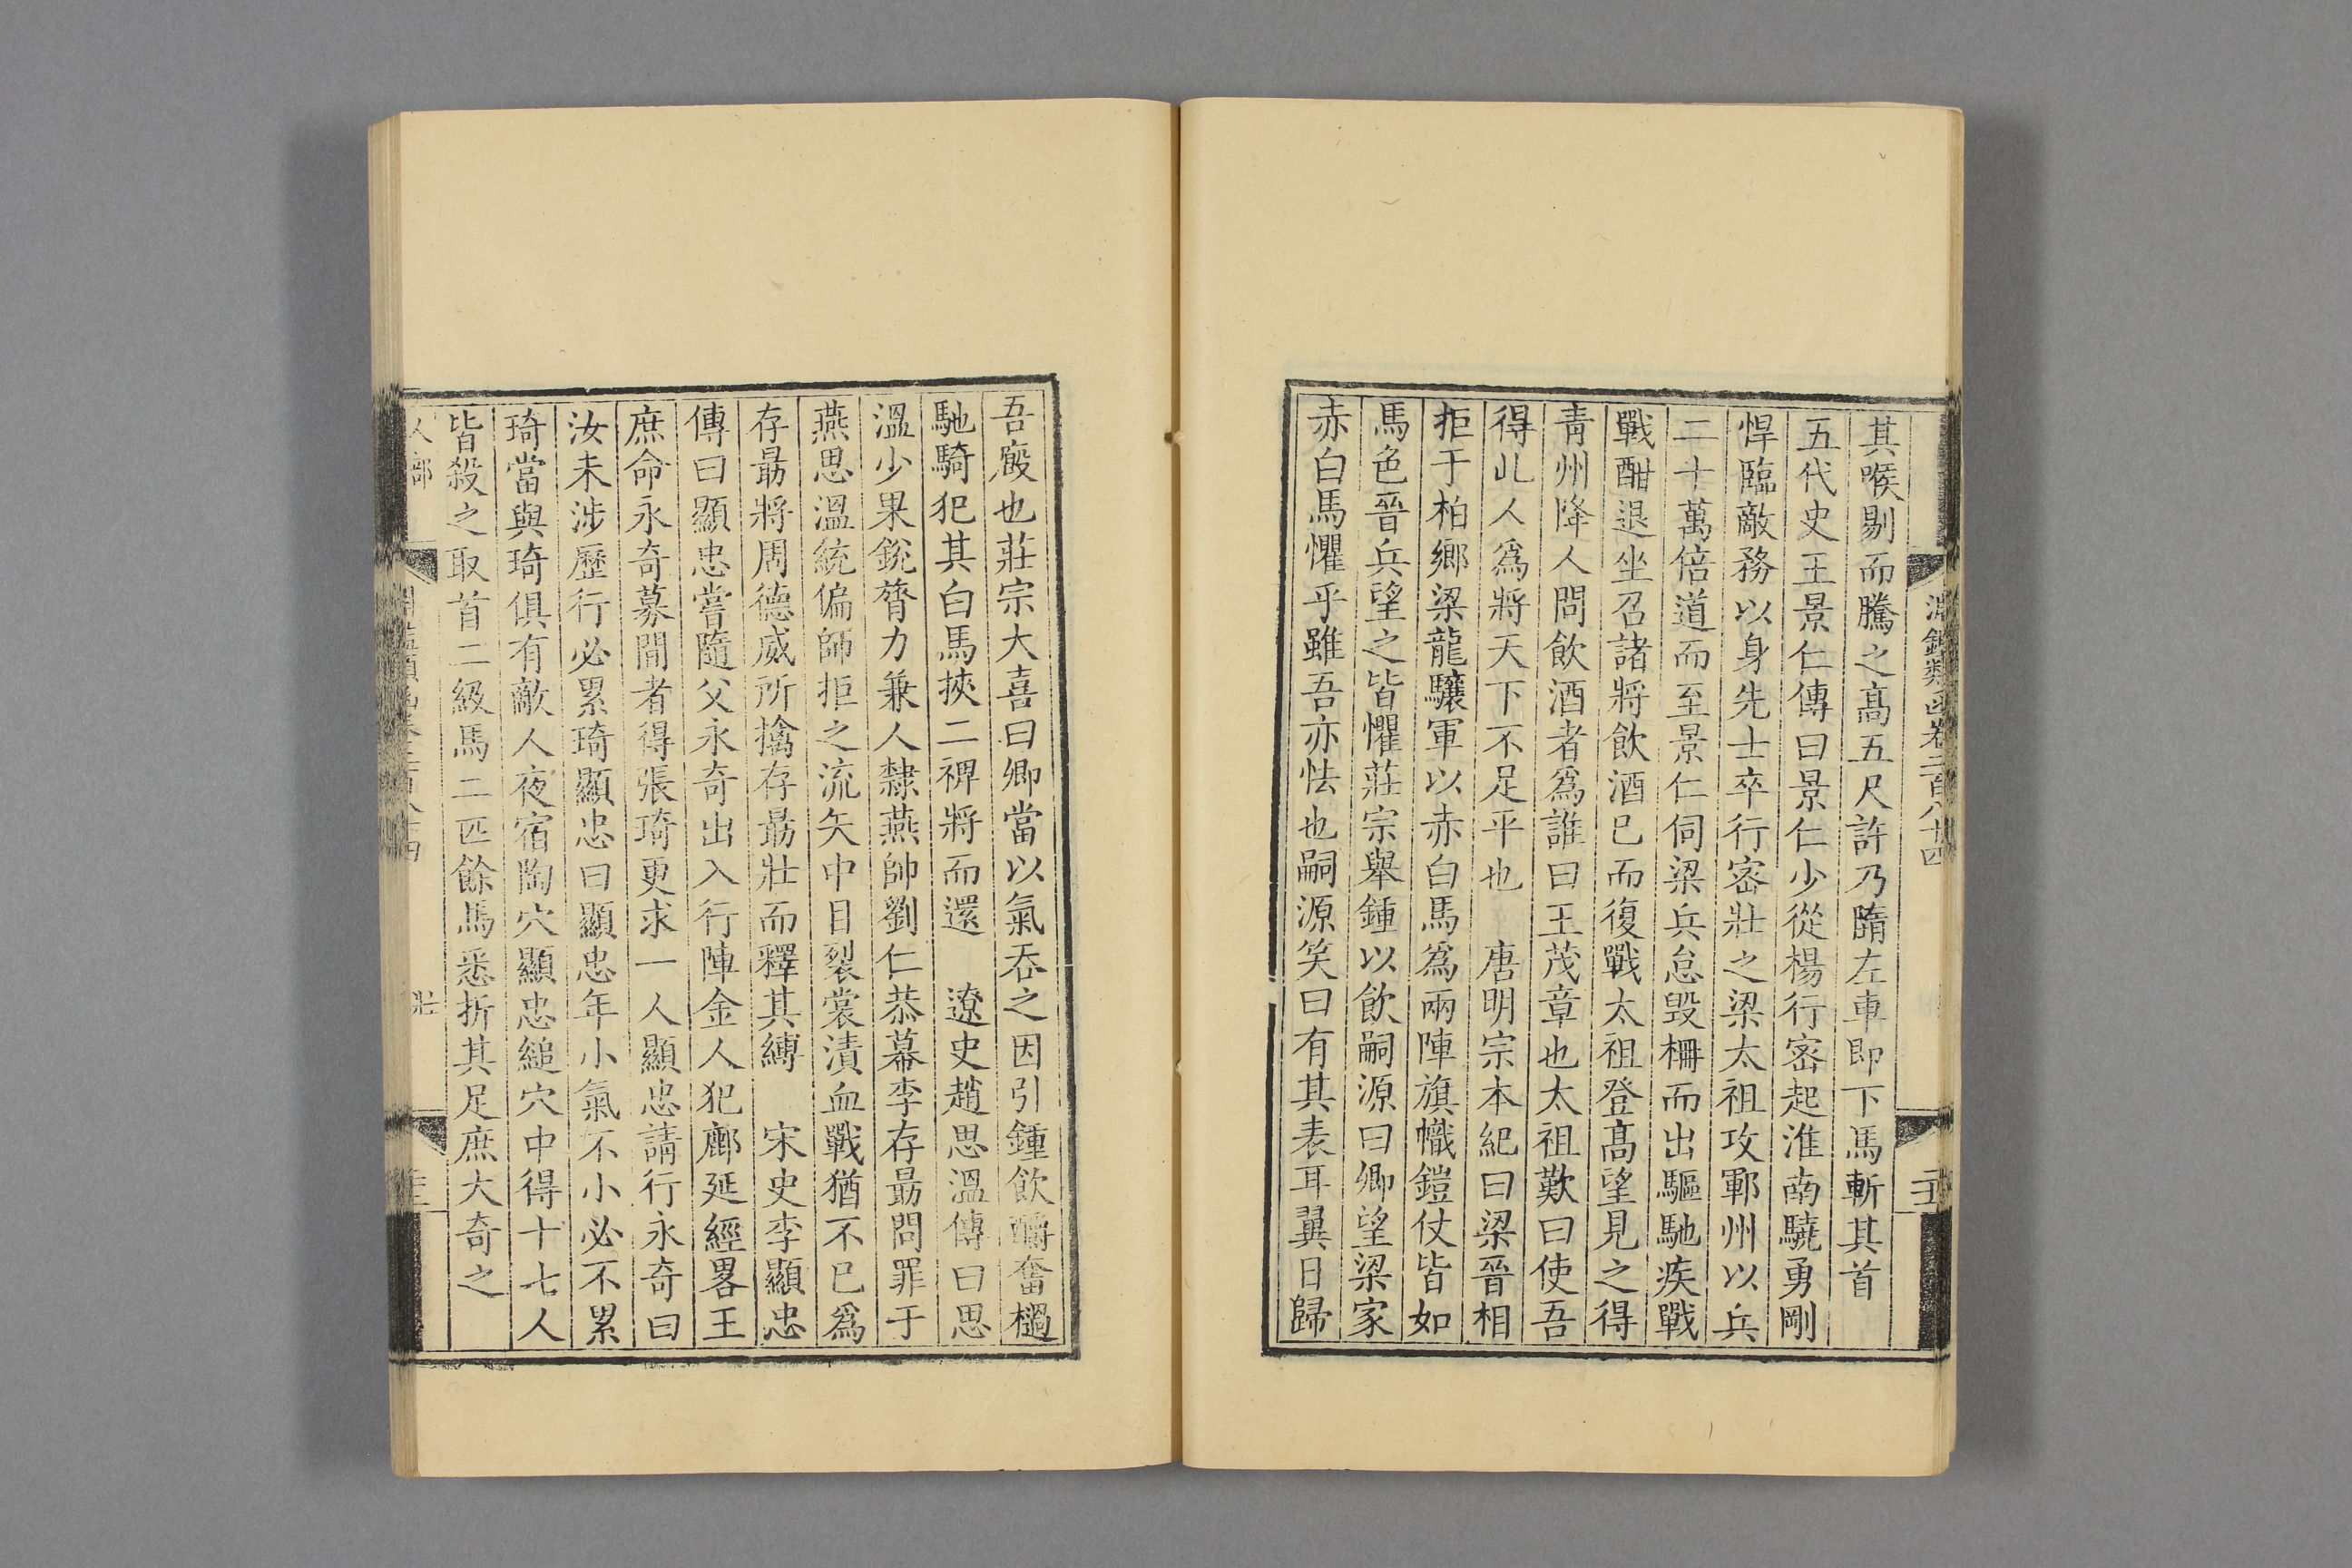 淵鑑類函卷二百八十四
其喉剔而騰之高五尺許乃隋左車卽下馬斬其首
五代史王景仁傳曰景仁少從楊行密起淮南驍勇剛
悍臨敵務以身先士卒行密壯之梁太祖攻鄆州以兵
二十萬倍道而至景仁伺梁兵怠毀柵而出驅馳疾戰
戰酣退坐召諸將飲酒已而復戰太祖登髙望見之得
靑州降人問飲酒者爲誰曰王茂章也太祖歎曰使吾
得此人爲將天下不足平也　唐明宗本紀曰梁晉相
拒于柏鄉梁龍驤軍以赤白馬爲兩陣旗幟鎧仗皆如
馬色晉兵望之皆懼莊宗舉鍾以飲嗣源曰卿望梁家
赤白馬懼乎雖吾亦怯也嗣源笑曰有其表耳翼日歸
吾廄也莊宗大喜曰卿當以氣吞之因引鍾飲釂奮檛
馳騎犯其白馬挾二裨將而還　遼史趙思溫傳曰思
溫少果銳膂力兼人隸燕帥劉仁恭幕李存勗問罪于
燕思溫統偏師拒之流矢中目裂裳漬血戰猶不已爲
存勗將周德威所擒存勗壯而釋其縛　宋史李顯忠
傳曰顯忠嘗隨父永奇出入行陣金人犯鄜延經畧王
庶命永奇募閒者得張琦更求一人顯忠請行永奇曰
汝未涉歷行必累琦顯忠曰顯忠年小氣不小必不累
琦當與琦俱有敵人夜宿陶穴顯忠縋穴中得十七人
皆殺之取首二級馬二匹餘馬悉折其足庶大奇之
人部
壯